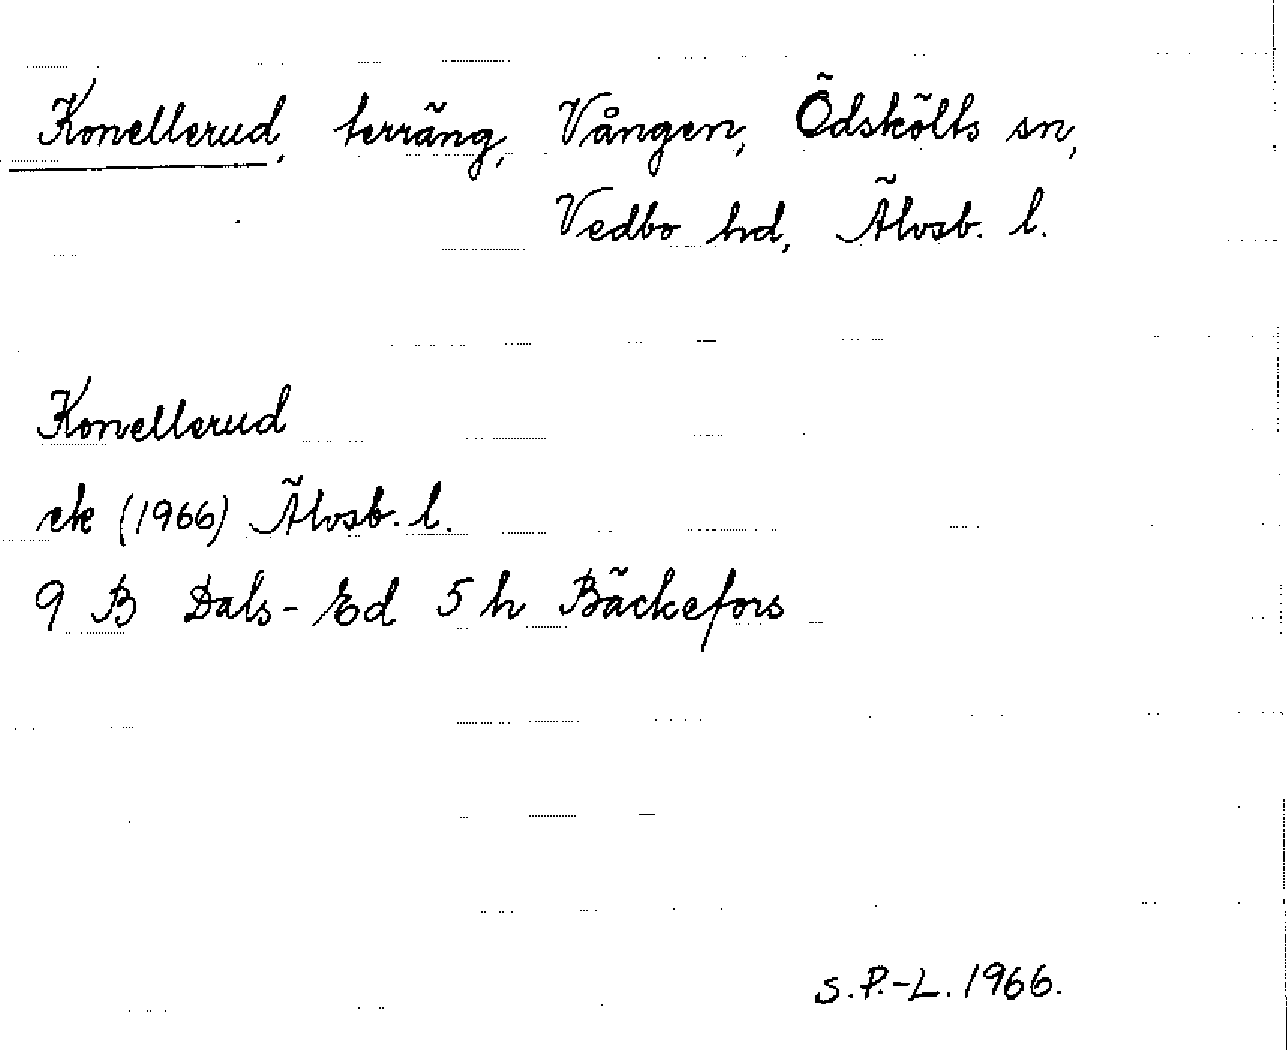 Konellerud, terräng, Vången, Ödskölts sn,
Vedbo hd, Älvsb. l.
Konellerud
ek (1966) Älvsb. l.
9 B Dals-Ed 5 h Bäckefors
S.P.-L. 1966.